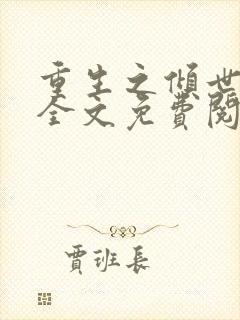 重生之倾世
全文免費閱
賈班長